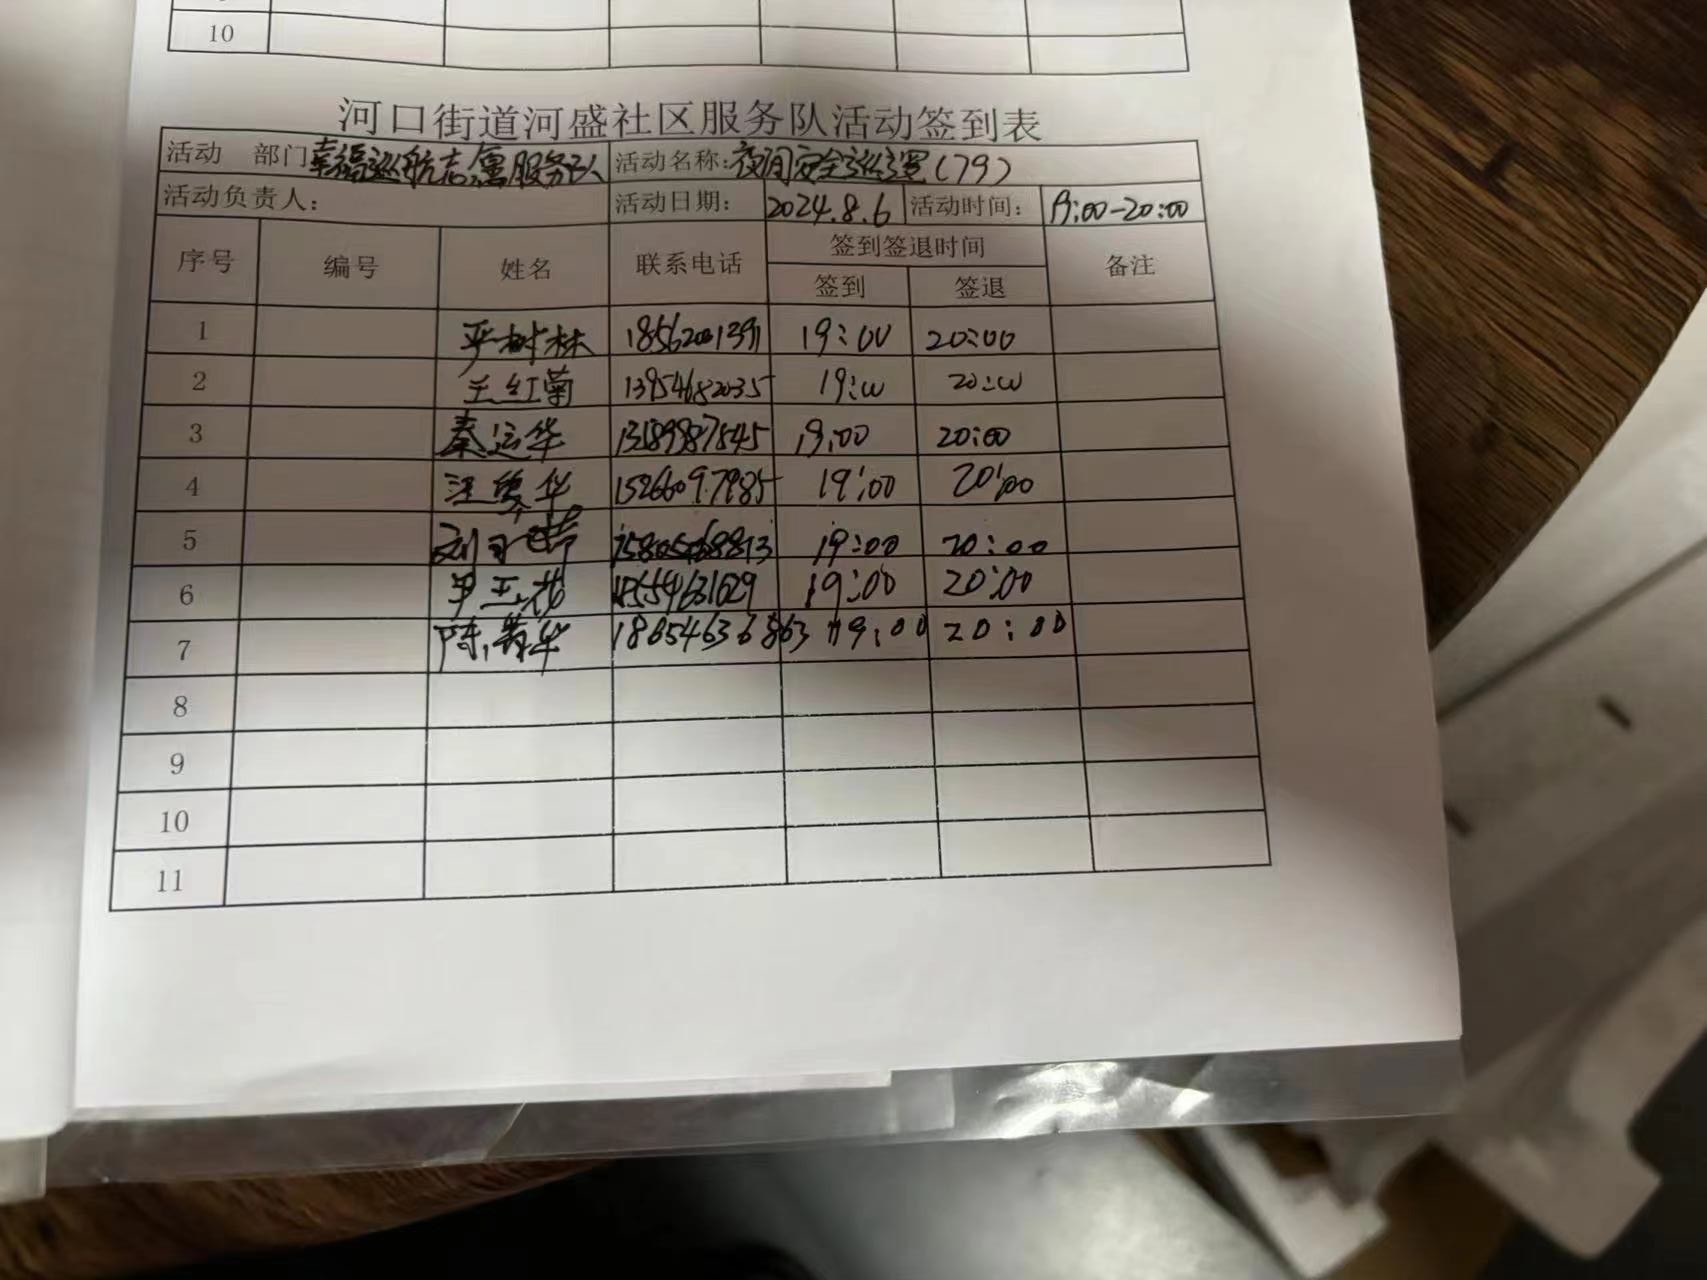 10
河口街道河盛社区服务队活动签到表
活动 部门 幸福巡航志愿服务队 活动名称: 夜间安全巡逻(79)
活动负责人: 活动日期: 2024.8.6 活动时间: 19:00-20:00
序号 编号 姓名 联系电话 签到签退时间 备注
签到 签退
1 严树林 18562001391 19:00 20:00
2 王红菊 13954682035 19:00 20:00
3 秦运华 13589987545 19:00 20:00
4 汪 华 15266097985 19:00 20:00
5 刘 19:00 20:00
6 尹玉花 19:00 20:00
7 陈 华 18654636863 19:00 20:00
8
9
10
11